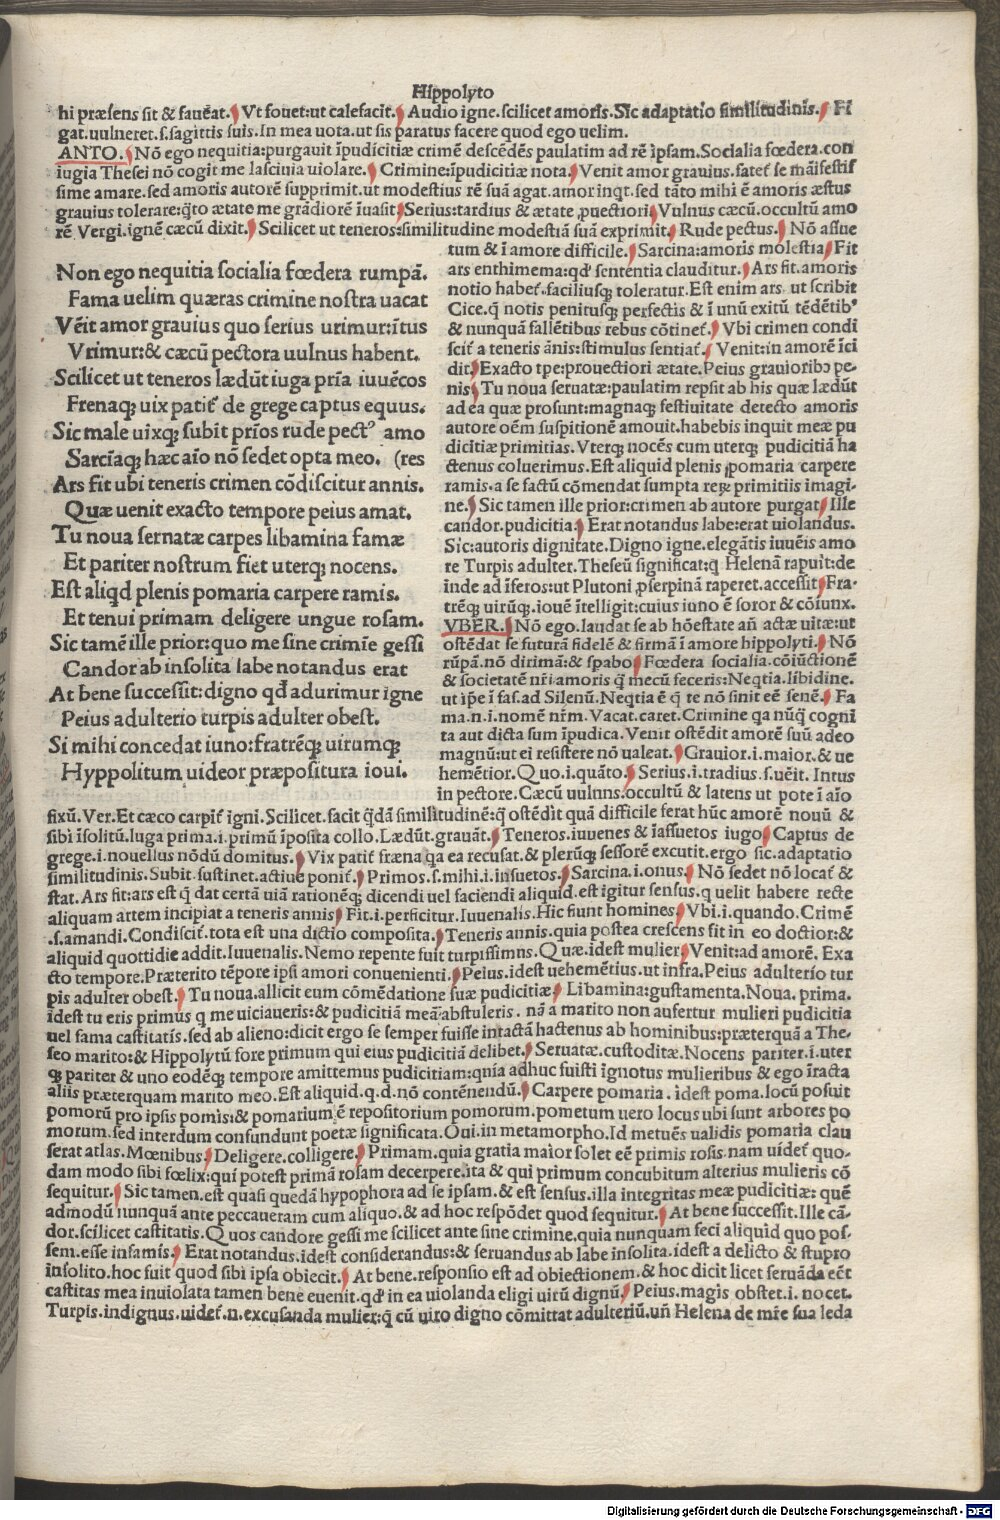 Hippolyto
hi præsens sit & fauēat. Vt fouet:ut calefacit. Audio igne.scilicet amoris.Sic adaptatio similitudinis. Fi
gat.uulneret.s.sagittis suis.In mea uota.ut sis paratus facere quod ego uelim.
ANTO. Nō ego nequitia:purgauit īpudicitiæ crimē descēdēs paulatim ad rē ipsam.Socialia fœdera.con
iugia Thesei nō cogit me lasciuia uiolare. Crimine:īpudicitiæ nota. Venit amor grauius.fatet̄ se māifestis
sime amare.sed amoris autorē supprimit.ut modestius rē suā agat.amor inqt.sed tāto mihi ē amoris æstus
grauius tolerare:q̄to ætate me grādiorē īuasit Serius:tardius & ætate ꝓuectiori Vulnus cæcū.occultū amo
rē Vergi.ignē cæcū dixit. Scilicet ut teneros:similitudine modestiā suā exprimit. Rude pectus. Nō assue
tum & ī amore difficile. Sarcina:amoris molestia Fit
ars enthimema:qd' sententia clauditur. Ars fit.amoris
notio habet̄.faciliusꝗ toleratur.Est enim ars ut scribit
Cice.q̄ notis penitusꝗ perfectis & ī unū exitū tēdētib⁹
& nunquā fallētibus rebus cōtinet̄. Vbi crimen condi
scit̄ a teneris ānis:stimulus sentiat̄. Venit:in amorē īci
dit. Exacto tpe:prouectiori ætate.Peius grauiorib⁹ pe-
nis Tu noua seruatæ:paulatim repsit ab his quæ lædūt
ad ea quæ prosunt:magnaꝗ festiuitate detecto amoris
autore oēm suspitionē amouit.habebis inquit meæ pu
dicitiæ primitias.Vterꝗ nocēs cum uterꝗ pudicitiā ha
ctenus coluerimus.Est aliquid plenis ꝓomaria carpere
ramis.a se factū cōmendat sumpta reꝝ primitiis imagi-
ne. Sic tamen ille prior:crimen ab autore purgat Ille
candor.pudicitia: Erat notandus labe:erat uiolandus.
Sic:autoris dignitate.Digno igne.elegātis iuuēis amo
re Turpis adulter.Theseū significat:q̄ Helenā rapuit:de
inde ad īferos:ut Plutoni ꝓserpinā raperet.accessit Fra-
trēꝗ uirūꝗ.iouē ītelligit:cuius iuno ē soror & cōiunx.
VBER. Nō ego.laudat se ab hōestate añ actæ uitæ:ut
ostēdat se futurā fidelē & firmā ī amore hippolyti. Nō
rūpā.nō dirimā:& spabo Fœdera socialia.cōiūctionē
& societatē nr̄i amoris q̄ mecū feceris:Neqtia.libidine.
ut ip̄e ī fas.ad Silenū.Neqtia ē q̄ te nō sinit eē senē. Fa
ma.n.i.nomē nr̄m.Vacat.caret.Crimine qa nūq̄ cogni
ta aut dicta sum īpudica.Venit ostēdit amorē suū adeo
magnū:ut ei resistere nō ualeat. Grauior.i.maior.& ue
hemētior.Quo.i.quāto. Serius.i.tradius.s.uēit.Intus
in pectore.Cæcū uulnns.occultū & latens ut pote ī aīo
Non ego nequitia socialia fœdera rumpā.
Fama uelim quæras crimine nostra uacat
Vēit amor grauius quo serius urimur:ītus
Vrimur:& cæcū pectora uulnus habent.
Scilicet ut teneros lædūt iuga pr̄ia iuuēcos
Frenaꝗ uix patit̄ de grege captus equus.
Sic male uixꝗ subit pr̄ios rude pect⁹ amo
Sarcīaꝗ hæc aīo nō sedet opta meo. (res
Ars fit ubi teneris crimen cōdiscitur annis.
Quæ uenit exacto tempore peius amat.
Tu noua sernatæ carpes libamina famæ
Et pariter nostrum fiet uterꝗ nocens.
Est aliqd plenis pomaria carpere ramis.
Et tenui primam deligere ungue rosam.
Sic tamē ille prior:quo me sine crimīe gessi
Candor ab insolita labe notandus erat
At bene successit:digno qd̄ adurimur igne
Peius adulterio turpis adulter obest.
Si mihi concedat iuno:fratrēꝗ uirumꝗ
Hyppolitum uideor præpositura ioui.
fixū.Ver.Et cæco carpit̄ igni.Scilicet.facit q̄dā similitudinē:q̄ ostēdit quā difficile ferat hūc amorē nouū &
sibi īsolitū.Iuga prima.i.primū īposita collo.Lædūt.grauāt. Teneros.iuuenes & īassuetos iugo Captus de
grege.i.nouellus nōdū domitus. Vix patit̄ fræna qa ea recusat.& plerūꝗ sessorē excutit.ergo sic.adaptatio
similitudinis.Subit.sustinet.actiue ponit̄. Primos.s.mihi.i.insuetos. Sarcina.i.onus. Nō sedet nō locat̄ &
stat.Ars fit:ars est q̄ dat certā uiā rationēꝗ dicendi uel faciendi aliquid.est igitur sensus.q uelit habere recte
aliquam artem incipiat a teneris annis Fit.i.perficitur.Iuuenalis.Hic fiunt homines Vbi.i.quando.Crimē
.s.amandi.Condiscit̄.tota est una dictio composita. Teneris annis.quia postea crescens fit in eo doctior:&
aliquid quottidie addit.Iuuenalis.Nemo repente fuit turpissimns.Quæ.idest mulier Venit:ad amorē.Exa
cto tempore.Præterito tēpore ipsi amori conuenienti. Peius.idest uehemētius.ut infra.Peius adulterio tur
pis adulter obest. Tu noua.allicit eum cōmēdatione suæ pudicitiæ Libamina:gustamenta.Noua.prima.
idest tu eris primus q me uiciaueris:& pudicitiā meā abstuleris.nā a marito non aufertur mulieri pudicitia
uel fama castitatis.sed ab alieno:dicit ergo se semper fuisse intactā hactenus ab hominibus:præterquā a The-
seo marito:& Hippolytū fore primum qui eius pudicitiā delibet. Seruatæ.custoditæ.Nocens pariter.i.uter
ꝗ pariter & uno eodēꝗ tempore amittemus pudicitiam:qnia adhuc fuisti ignotus mulieribus & ego īracta
aliis præterquam marito meo.Est aliquid.q.d.nō contēnendū. Carpere pomaria.idest poma.locū posuit
pomorū pro ipsis pomis:& pomarium ē repositorium pomorum.pometum uero locus ubi sunt arbores po
morum.sed interdum confundunt poetæ significata.Oui.in metamorpho.Id metuēs ualidis pomaria clau
serat atlas.Mœnibus Deligere.colligere. Primam.quia gratia maior solet eē primis rosis.nam uidet̄ quo-
dam modo sibi fœlix:qui potest primā rosam decerpere.ita & qui primum concubitum alterius mulieris cō
sequitur. Sic tamen.est quasi quedā hypophora ad se ipsam.& est sensus.illa integritas meæ pudicitiæ:quē
admodū nunquā ante peccaueram cum aliquo.& ad hoc respōdet quod sequitur. At bene successit.Ille cā-
dor.scilicet castitatis.Quos candore gessi me scilicet ante sine crimine.quia nunquam feci aliquid quo pos-
sem.esse infamis. Erat notandus.idest considerandus:& seruandus ab labe insolita.idest a delicto & stupro
insolito.hoc fuit quod sibi ipsa obiecit. At bene.responsio est ad obiectionem.& hoc dicit licet seruāda eēt
castitas mea inuiolata tamen bene euenit.qd' in ea uiolanda eligi uirū dignū Peius.magis obstet.i.nocet.
Turpis.indignus.uidet̄.n.excusanda mulier:q̄ cū uiro digno cōmittat adulteriū.uñ Helena de mr̄e sua leda
Digitalisierung gefördert durch die Deutsche Forschungsgemeinschaft - DFG